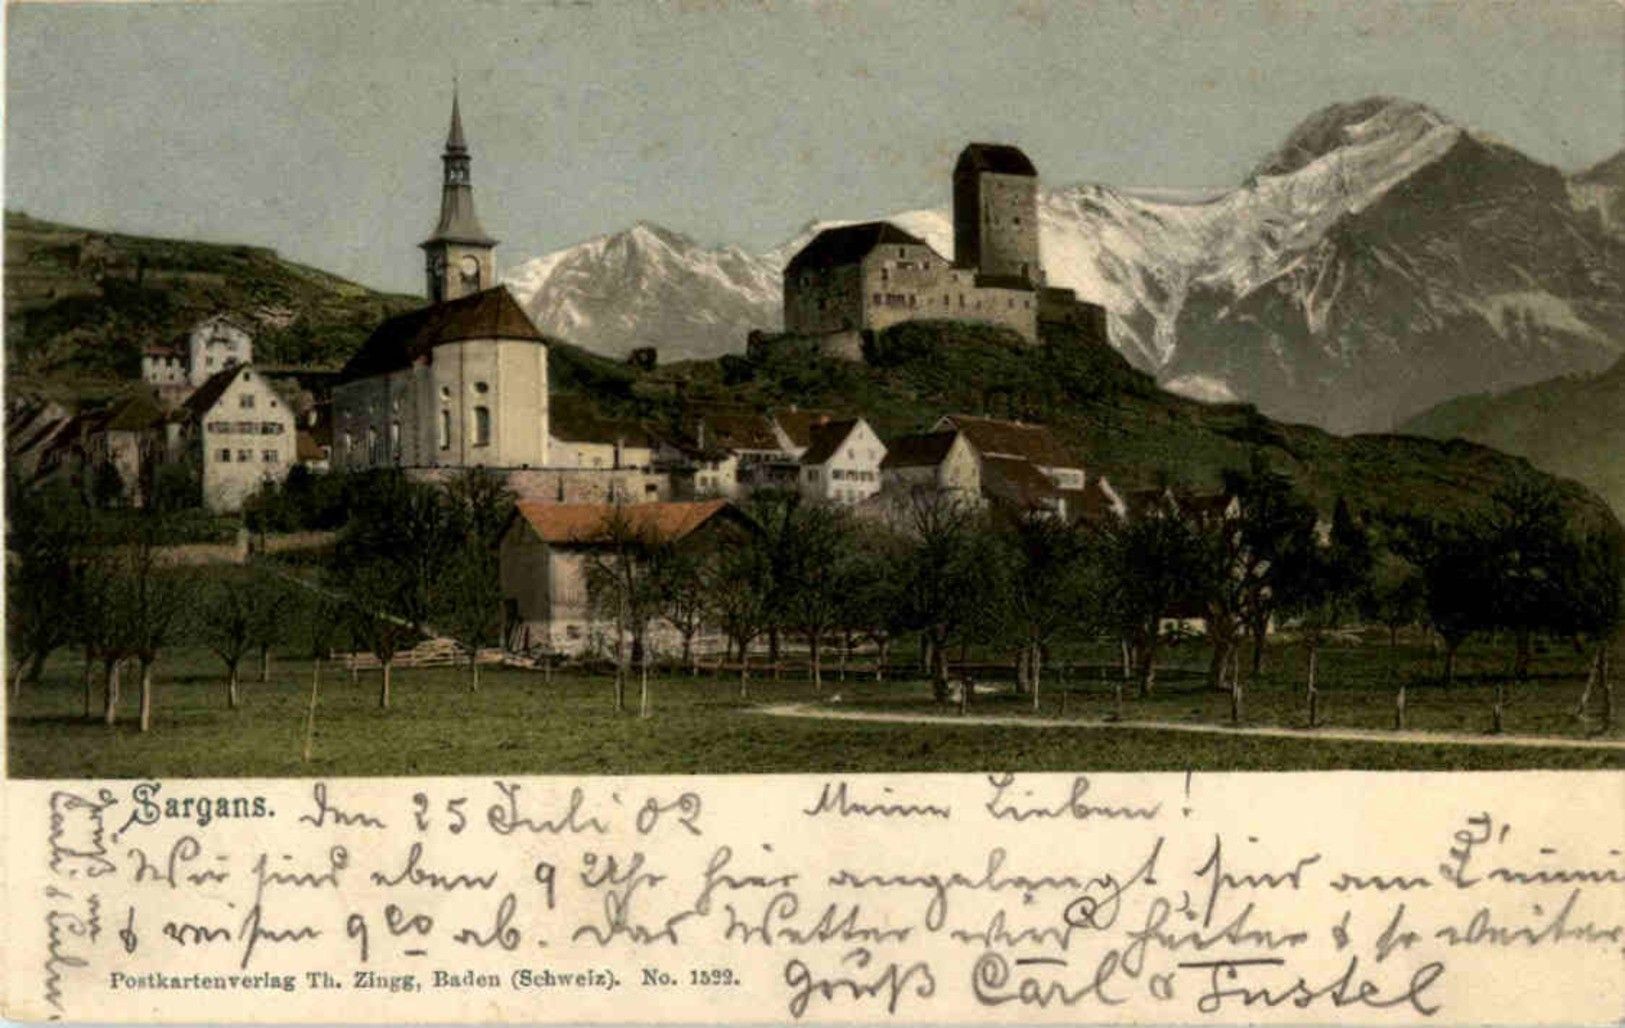 Sargans. den 25 Juli 02 Meine Lieben!
Wir sind eben 9 Uhr hier angelangt, sind am
& reisen 9 ab. Das Wetter wird heiter & so weiter.
Postkartenverlag Th. Zingg, Baden (Schweiz). No. 1522.
Gruß Carl &
Gruß an